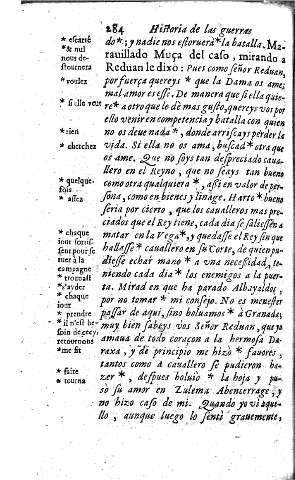 284 Historia de las guerras
* escarté
* & nul
nous de-
stournera
* voulez
* si elle veut
* rien
* cherchez
* quelque-
fois
* assez
* chaque
jour sortis-
sent pour se
tuer à la
campagne
* trouuast
* s'ayder
* chaque
jour
* prendre
* il n'est be-
soin de cecy;
retournons
* me fit
* faite
* tourna
do*; y nadie nos estoruerá* la batalla. Ma-
rauillado Muça del caso, mirando a
Reduan le dixo: Pues como señor Reduan,
por fuerça quereys * que la Dama os ame;
mal amor es esse. De manera que si ella quie-
re* a otro que le dè mas gusto, quereys vos por
ello venir en competencia y batalla con quien
no os deue nada*, donde arriscays perder la
vida. Si ella no os ama, buscad* otra que
os ame. Que no soys tan despreciado caua-
llero en el Reyno, que no seays tan bueno
como otro qualquiera*, assi en valor de per-
sona, como en bienes y linage. Harto* bueno
seria por cierto, que los caualleros mas pre-
ciados que el Rey tiene, cada dia se saliessen a
matar en la Vega*, y quedasse el Rey sin que
hallasse* cauallero en su Corte, de quien pu-
diesse echar mano* a una necessidad, te-
niendo cada dia* los enemigos a la puer-
ta. Mirad en que ha parado Albayaldos,
por no tomar* mi consejo. No es menester
passar de aqui, sino boluamos* à Granada;
muy bien sabeys vos Señor Reduan, que yo
amaua de todo coraçon a la hermosa Da-
raxa, y dè principio me hizo* fauores,
tantos como a cauallero se pudieron ha-
zer*, despues boluiò* la hoja y pu-
sò su amor en Zulema Abencerrage, y
no hizo caso de mi. Quando yo vi aque-
llo, aunque luego lo sentì grauemente,